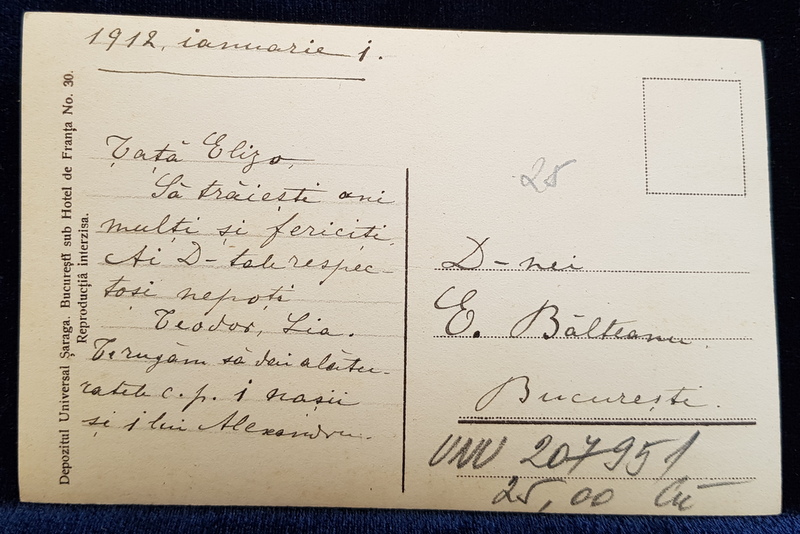 1912, ianuarie 1.
Depozitul Universal Șaraga. București sub Hotel de Franța No. 30.
Reproducția interzisa.
Țață Elizo,
Să trăiești ani
mulți și fericiti,
Ai D-tale respec-
toși nepoți
Teodor, Lia.
Te rugăm să dai alătu-
ratele c.p. 1 nașii
și 1 lui Alexandru.
25
D-nei
E. Bălteanu
București.
207951
25,00